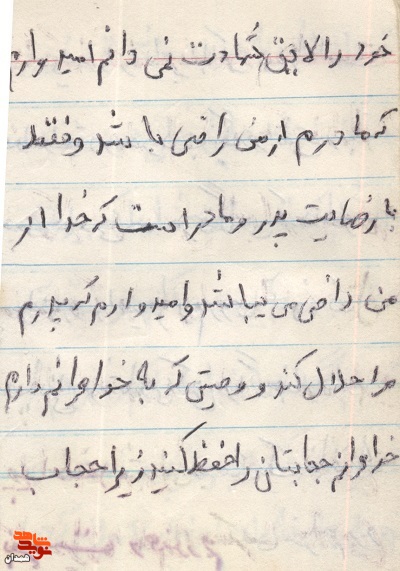 خود را لایق شهادت نمی دانم امیدوارم
که مادرم از من راضی باشد و فقط
با رضایت پدر و مادر است که خدا از
من راضی می‌باشد و امیدوارم که پدرم
مرا حلال کند و وصیتی که به خواهرانم دارم
خواهرانم حجابتان را حفظ کنید زیرا حجاب
نوید شاهد
همدان